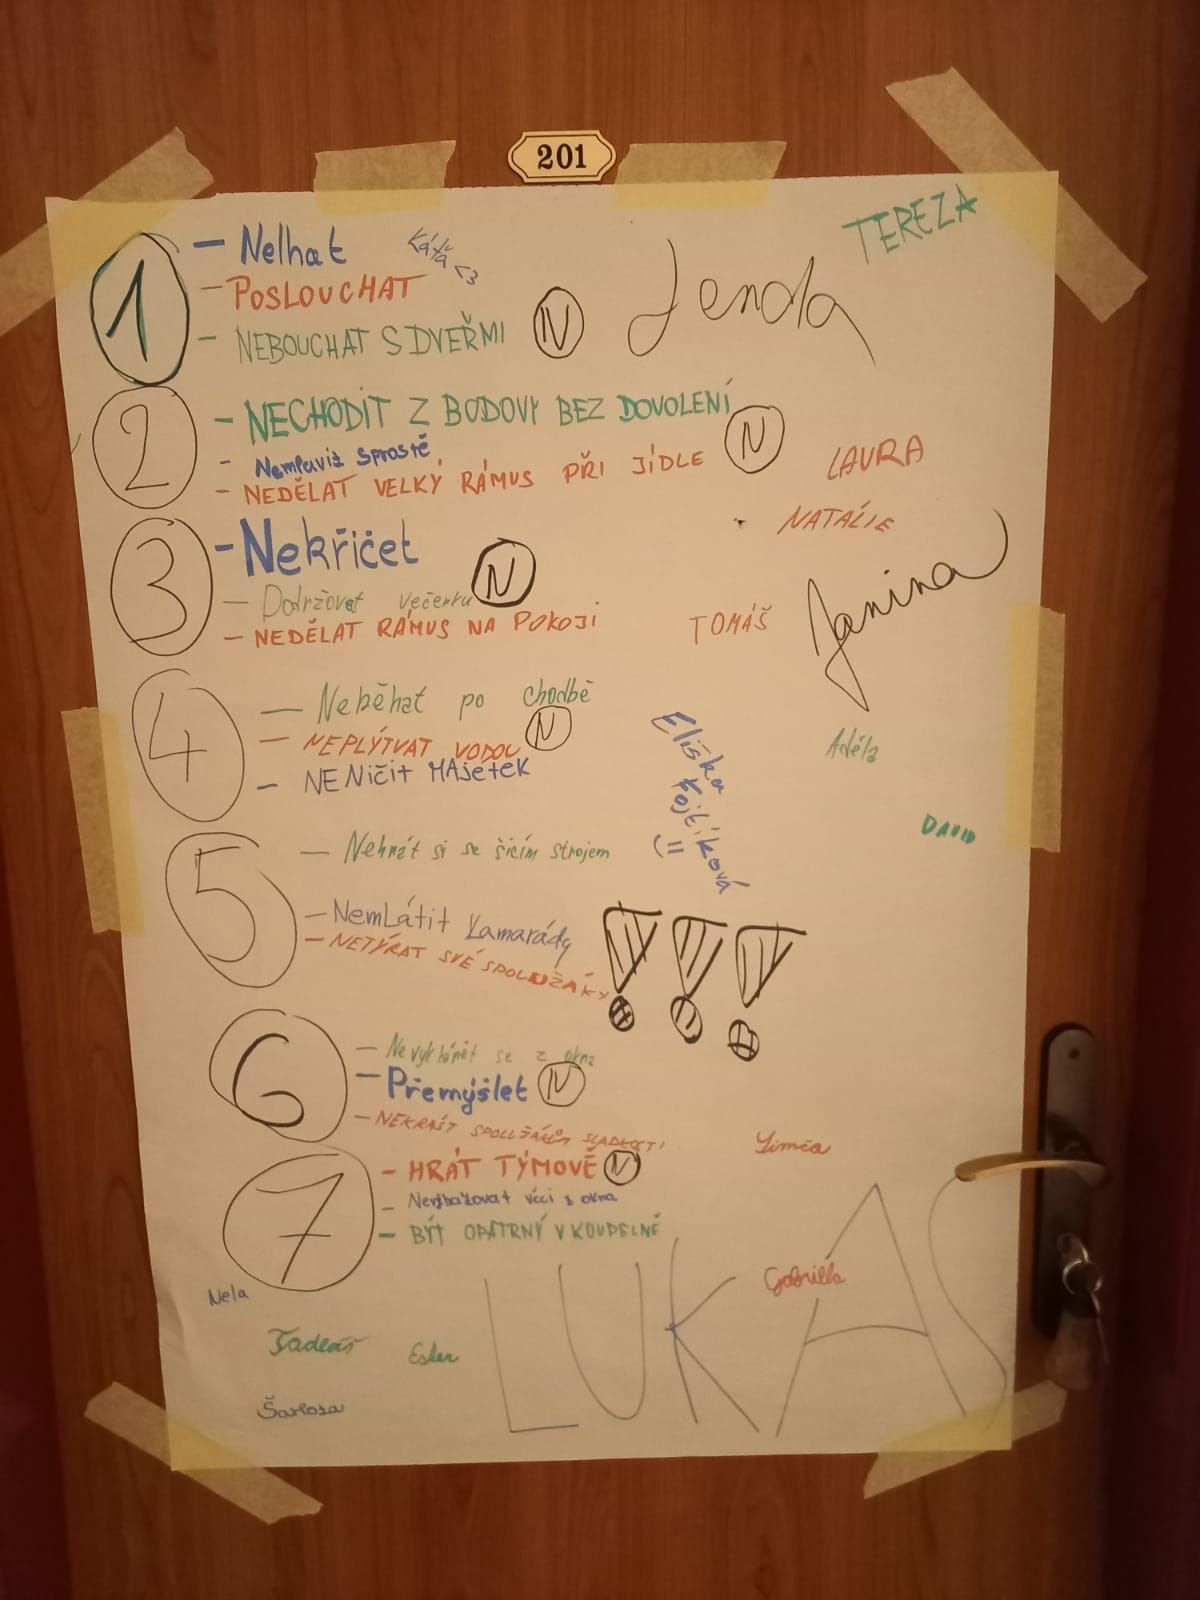 201
TEREZA
1
- Nelhat
Káťa <3
- POSLOUCHAT
- NEBOUCHAT S DVEŘMI
N
Jenda
2
- NECHODIT Z BODOVY BEZ DOVOLENÍ
- Nemluviz sprostě
- NEDĚLAT VELKÝ RÁMUS PŘI JÍDLE
N
LAURA
NATÁLIE
3
- Nekřičet
- Dodržovat večerku
N
- NEDĚLAT RÁMUS NA POKOJI
TOMÁŠ
Janina
4
- Neběhat po chodbě
- NEPLÝTVAT VODOU
N
- NENičit MAjetEK
Eliška
Fojtíková
=)
Adéla
DAVID
5
- Nehrát si se šicím strojem
- NemLátit kamarády
- NETÝRAT SVÉ SPOLUŽÁKY
!!!
6
- Nevyklánět se z okna
- Přemýšlet
N
- NEKRÁST SPOLUŽÁKŮM SLADKOSTI
7
- HRÁT TÝMOVĚ
N
- Nevyhazovat věci z okna
- BÝT OPATRNÝ V KOUPELNĚ
Nela
Gabriella
Tadeáš
Ester
LUKAS